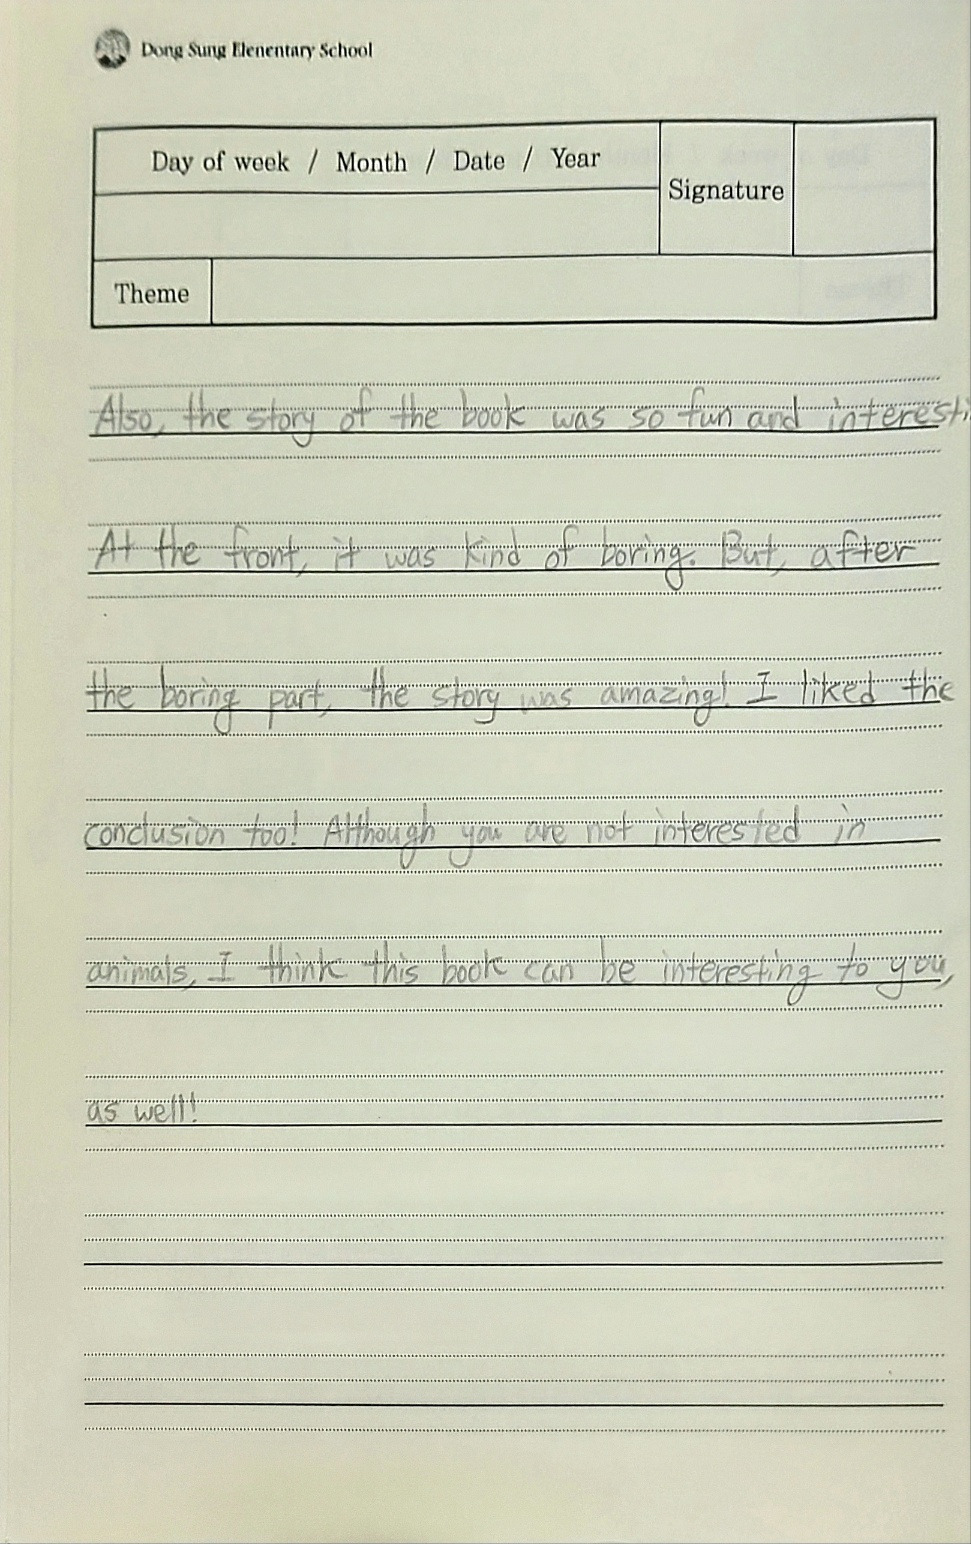 Dong Sung Elenentary School
Day of week / Month / Date / Year
Signature
Theme
Also, the story of the book was so fun and interesti
At the front, it was kind of boring. But, after
the boring part, the story was amazing! I liked the
conclusion too! Although you are not interested in
animals, I think this book can be interesting to you,
as well!